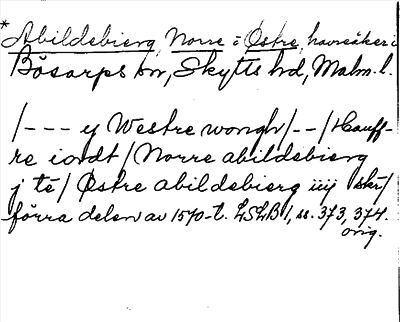 * Abildebierg, Norre = Østre, havreåker i
Bösarps sn, Skytts hd, Malm. l.
/--- y Westre wongh/--/Hauff-
re iordt/Norre abildebierg
j tē/ Østre abildebierg iiij skr/
förra delen av 1570-t. LSLB 1, ss. 373, 374.
orig.